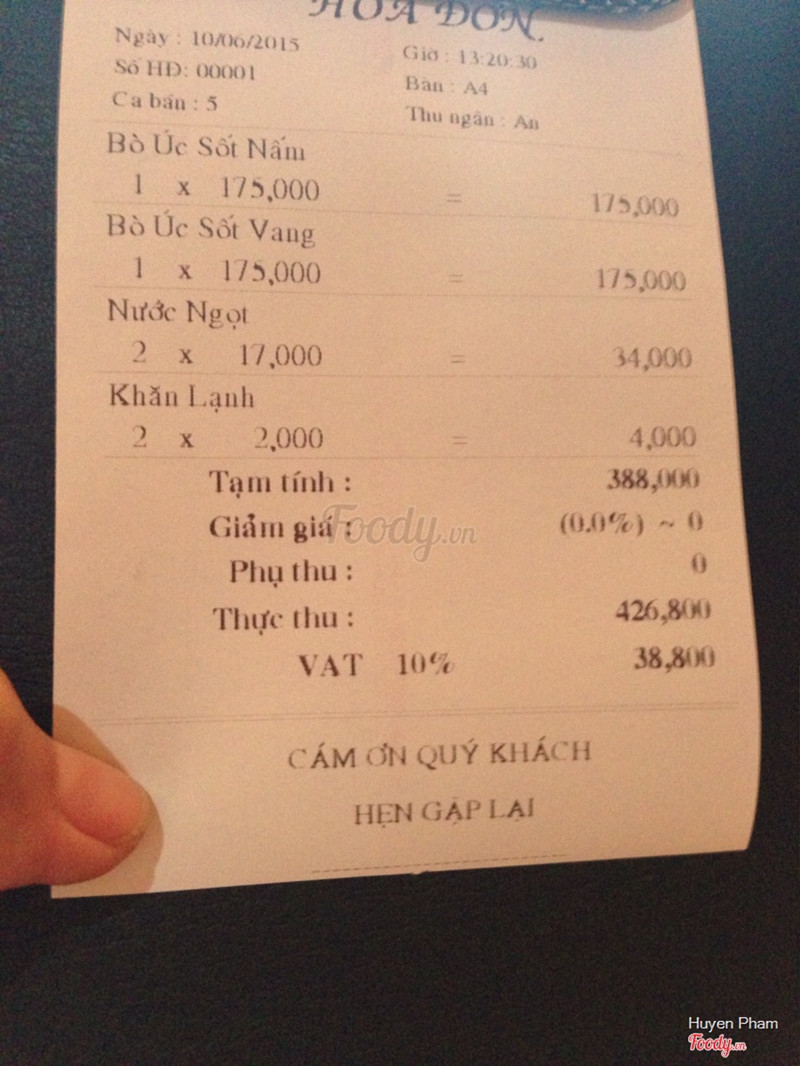 HOÁ ĐƠN
Ngày : 10/06/2015
Giờ : 13:20:30
Số HĐ: 00001
Bàn : A4
Ca bán : 5
Thu ngân : An
Bò Úc Sốt Nấm
1 x 175,000 = 175,000
Bò Úc Sốt Vang
1 x 175,000 = 175,000
Nước Ngọt
2 x 17,000 = 34,000
Khăn Lạnh
2 x 2,000 = 4,000
Tạm tính : 388,000
Giảm giá : (0.0%) ~ 0
Foody.vn
Phụ thu : 0
Thực thu : 426,800
VAT 10% 38,800
CÁM ƠN QUÝ KHÁCH
HẸN GẶP LẠI
Huyen Pham
Foody.vn